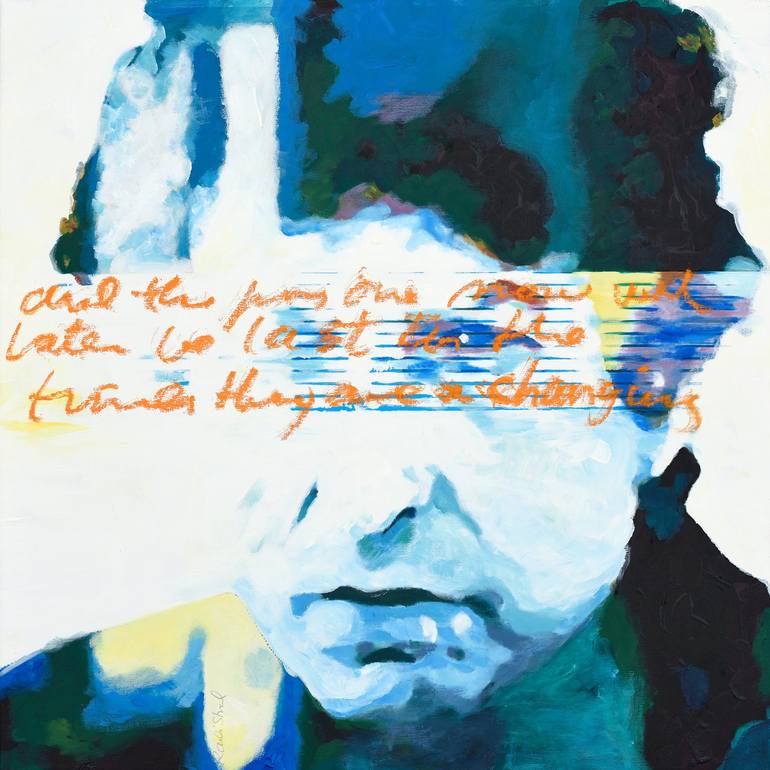 and the first one now will
later be last for the
times they are a changing